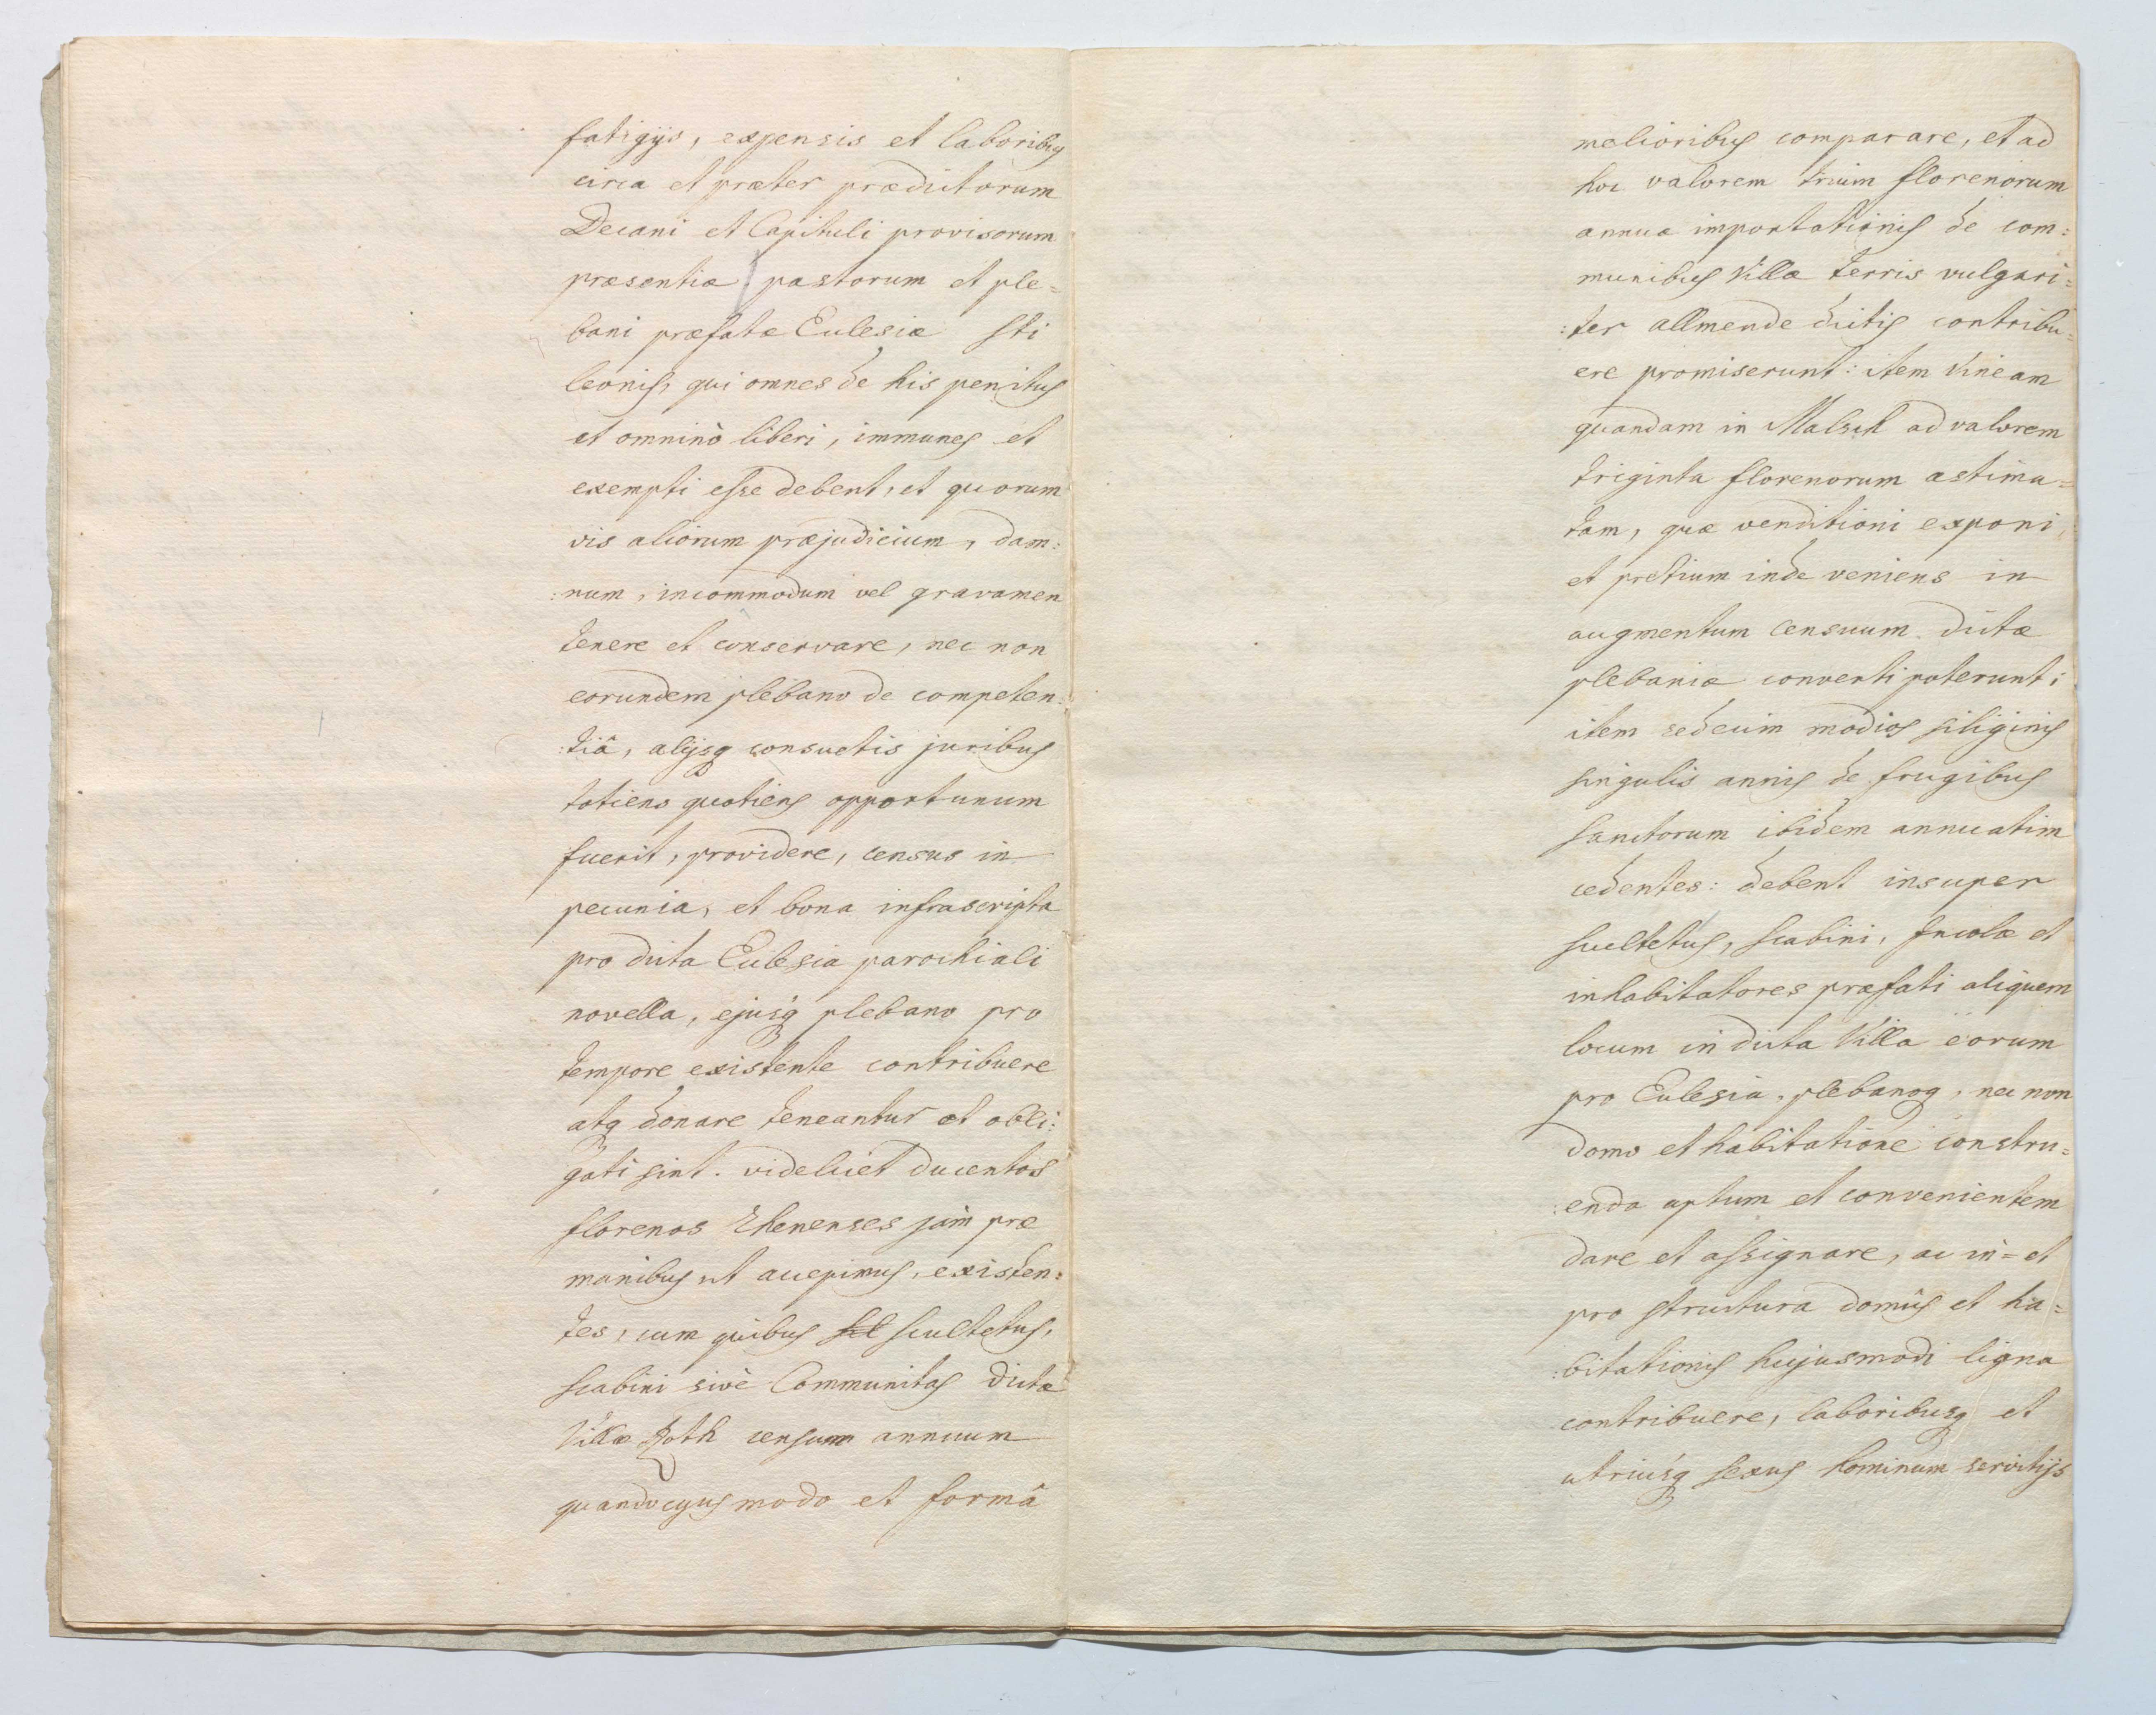 fatigijs, expensis et laboribus
circa et præter prædictorum
Decani et Capituli provisorum
præsentiæ pastorum et ple=
bani præfatæ Eclesiæ Sti
leonis, qui omnes de his penitus
et omninò liberi, immunes et
exempti esse debent, et quorum
vis aliorum præjudicium, dam:
:num, incommodum vel gravamen
tenere et conservare, nec non
eorundem plebano de competen:
:tiâ, alijsq consuetis juribus
totiens quotiens opportunum
fuerit, providere, census in
pecunia, et bona infrascripta
pro dicta Eclesia parochiali
novella, ejusq plebano pro
tempore existente contribuere
atq donare teneantur et obli:
gati sint. videlicet ducentos
florenos Rhenenses jàm præ
manibus ut accepimus, existen:
tes, cum quibus scultetus,
scabini sivè Communitas dictæ
Villæ Roth censum annuum
quandocyus modo et formâ
melioribus comparare, et ad
hoc valorem trium florenorum
annuæ importationis de com:
munibus Villæ terris vulgari:
:ter allmende dictis contribu=
ere promiserunt: item Vineam
quandam in Malsch ad valorem
triginta florenorum æstima=
tam, quæ venditioni exponi,
et pretium inde veniens in
augmentum censuum dictæ
plebaniæ converti poterunt;
item sedecim modios siliginis
singulis annis de frugibus
sanctorum ibidem annuatim
cedentes: debent insuper
scultetus, scabini, Incolæ et
inhabitatores præfati aliquem
locum in dicta Villa eorum
pro Eclesia, plebanoq, nec non
domo et habitatione constru=
:enda aptum et convenientem
dare et assignare, ac in= et
pro structura domûs et ha=
:bitationis hujusmodi ligna
contribuere, laboribusq et
utriusq sexus hominum servitijs